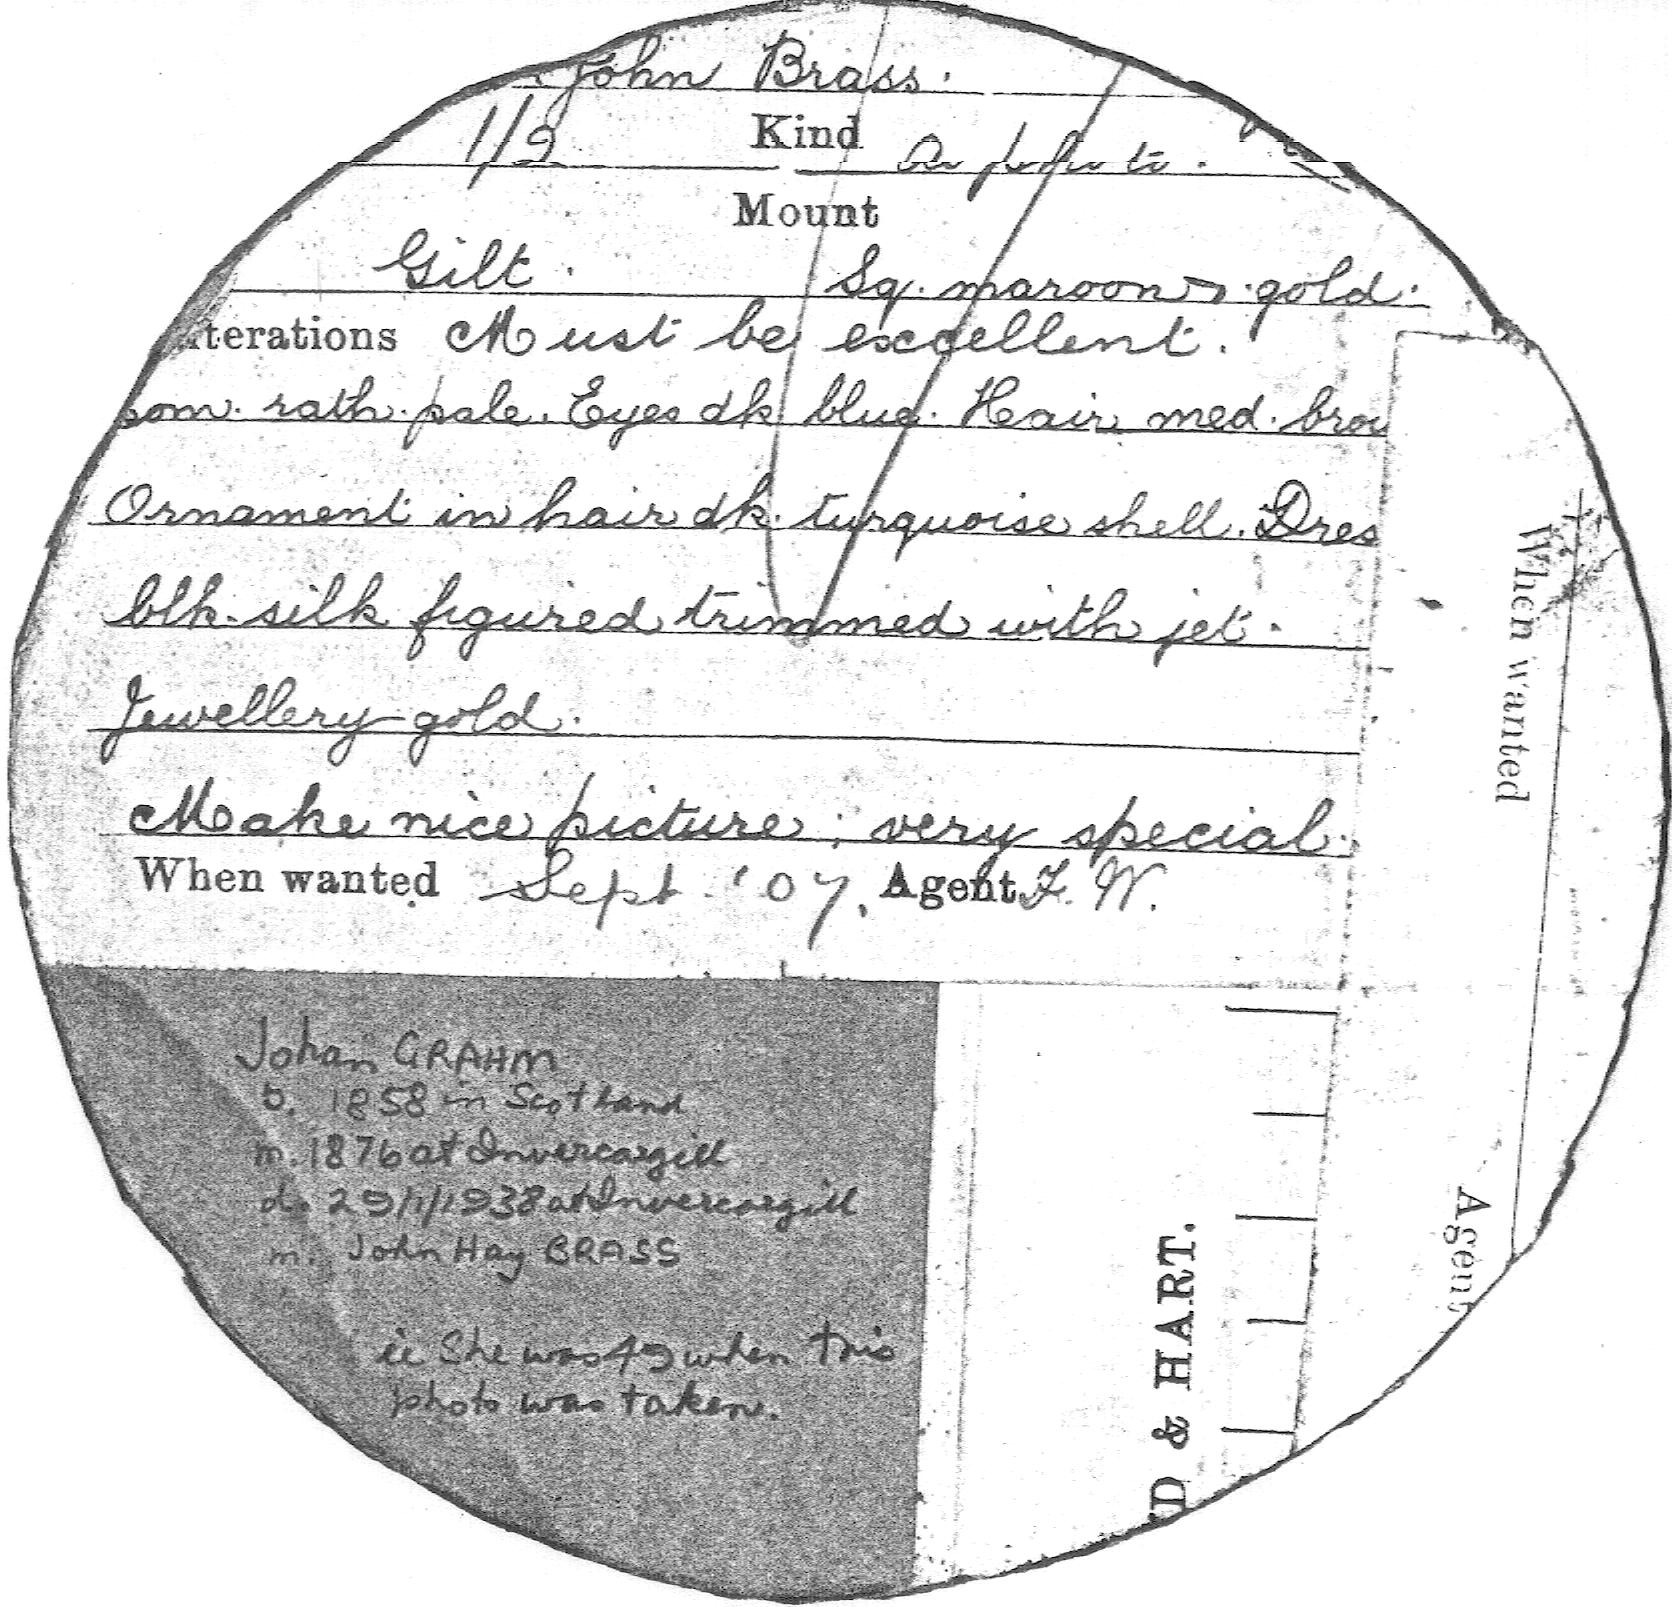 John Brass.
1/2 Kind As photo.
Mount
Gilt. Sq. maroon gold.
terations Must be excellent.
com. rath. pale. Eyes dk blue. Hair med. brow
Ornament in hair dk. turquoise shell. Dres
blk. silk figured trimmed with jet.
Jewellery gold.
Make nice picture; very special.
When wanted Sept. '07. Agent F. W.
Johan GRAHM
b. 1858 in Scotland
m. 1876 at Invercargill
d. 29/1/1938 at Invercargill
m. John Hay BRASS
ie She was 49 when this
photo was taken.
D & HART.
When wanted
Agent